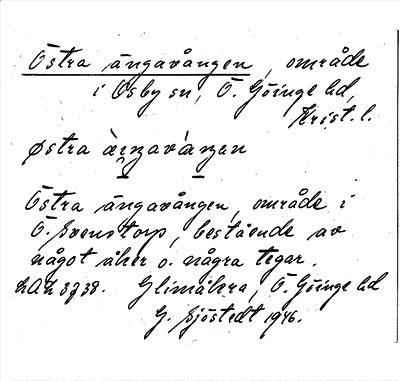 Östra ängavången, område
i Osby sn, Ö. Göinge hd,
Krist. l.
østra àŋavàŋan
Östra ängavången, område i
Ö. Svenstorp, bestående av
något åker o. några tegar.
LAL 3738. Glimåkra, Ö. Göinge hd
G. Sjöstedt 1946.